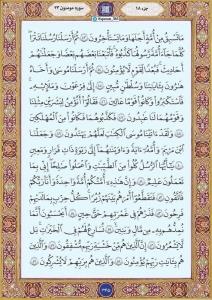 جزء ۱۸
سوره مومنون ۲۳
مَا تَسْبِقُ مِنْ أُمَّةٍ أَجَلَهَا وَمَا يَسْتَـْٔخِرُونَ ۝٤٣ ثُمَّ أَرْسَلْنَا رُسُلَنَا تَتْرَا
كُلَّ مَا جَآءَ أُمَّةً رَّسُولُهَا كَذَّبُوهُ فَأَتْبَعْنَا بَعْضَهُم بَعْضًا وَجَعَلْنَٰهُمْ
أَحَادِيثَ فَبُعْدًا لِّقَوْمٍ لَّا يُؤْمِنُونَ ۝٤٤ ثُمَّ أَرْسَلْنَا مُوسَىٰ وَأَخَاهُ
هَٰرُونَ بِـَٔايَٰتِنَا وَسُلْطَٰنٍ مُّبِينٍ ۝٤٥ إِلَىٰ فِرْعَوْنَ وَمَلَإِي۟هِۦ
فَٱسْتَكْبَرُوا۟ وَكَانُوا۟ قَوْمًا عَالِينَ ۝٤٦ فَقَالُوٓا۟ أَنُؤْمِنُ لِبَشَرَيْنِ مِثْلِنَا
وَقَوْمُهُمَا لَنَا عَٰبِدُونَ ۝٤٧ فَكَذَّبُوهُمَا فَكَانُوا۟ مِنَ ٱلْمُهْلَكِينَ
۝٤٨ وَلَقَدْ ءَاتَيْنَا مُوسَى ٱلْكِتَٰبَ لَعَلَّهُمْ يَهْتَدُونَ ۝٤٩ وَجَعَلْنَا
ٱبْنَ مَرْيَمَ وَأُمَّهُۥٓ ءَايَةً وَءَاوَيْنَٰهُمَآ إِلَىٰ رَبْوَةٍ ذَاتِ قَرَارٍ وَمَعِينٍ
۝٥٠ يَٰٓأَيُّهَا ٱلرُّسُلُ كُلُوا۟ مِنَ ٱلطَّيِّبَٰتِ وَٱعْمَلُوا۟ صَٰلِحًا إِنِّى بِمَا
تَعْمَلُونَ عَلِيمٌ ۝٥١ وَإِنَّ هَٰذِهِۦٓ أُمَّتُكُمْ أُمَّةً وَٰحِدَةً وَأَنَا۠ رَبُّكُمْ
فَٱتَّقُونِ ۝٥٢ فَتَقَطَّعُوٓا۟ أَمْرَهُم بَيْنَهُمْ زُبُرًا كُلُّ حِزْبٍۭ بِمَا لَدَيْهِمْ
فَرِحُونَ ۝٥٣ فَذَرْهُمْ فِى غَمْرَتِهِمْ حَتَّىٰ حِينٍ ۝٥٤ أَيَحْسَبُونَ أَنَّمَا
نُمِدُّهُم بِهِۦ مِن مَّالٍ وَبَنِينَ ۝٥٥ نُسَارِعُ لَهُمْ فِى ٱلْخَيْرَٰتِ بَل
لَّا يَشْعُرُونَ ۝٥٦ إِنَّ ٱلَّذِينَ هُم مِّنْ خَشْيَةِ رَبِّهِم مُّشْفِقُونَ ۝٥٧ وَٱلَّذِينَ
هُم بِـَٔايَٰتِ رَبِّهِمْ يُؤْمِنُونَ ۝٥٨ وَٱلَّذِينَ هُم بِرَبِّهِمْ لَا يُشْرِكُونَ ۝٥٩
۳۴۵